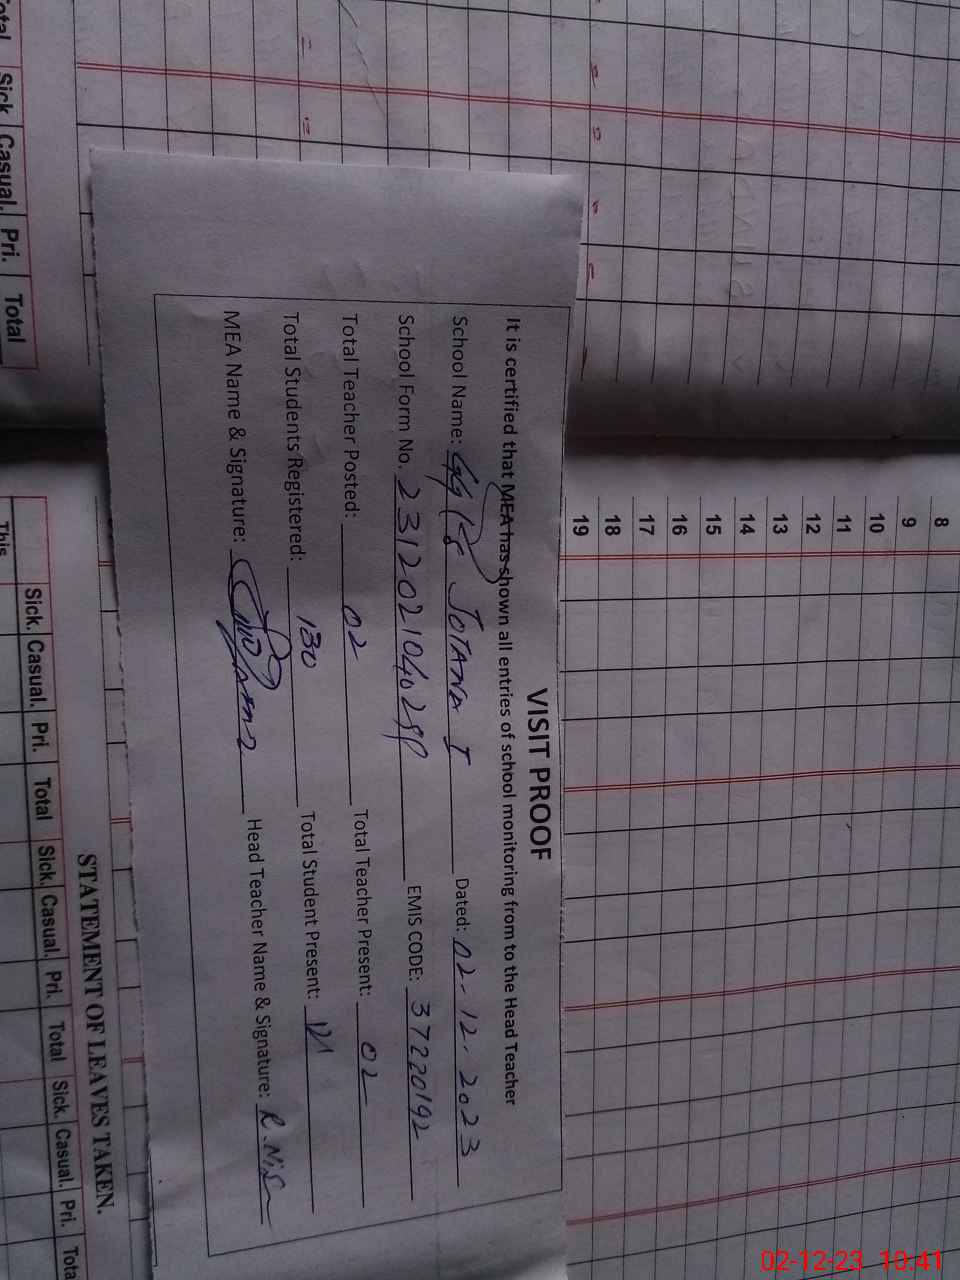 VISIT PROOF
It is certified that MEA has shown all entries of school monitoring from to the Head Teacher
School Name: GGPS JOTANA I Dated: 02-12-2023
School Form No. EMIS CODE: 37220192
Total Teacher Posted: 02 Total Teacher Present: 02
Total Students Registered: 130 Total Student Present:
MEA Name & Signature: Head Teacher Name & Signature:
8
9
10
11
12
13
14
15
16
17
18
19
Total Sick. Casual. Pri. Total
STATEMENT OF LEAVES TAKEN.
Sick. Casual. Pri. Total Sick. Casual. Pri. Total Sick. Casual. Pri. Total
This
02-12-23 10:41